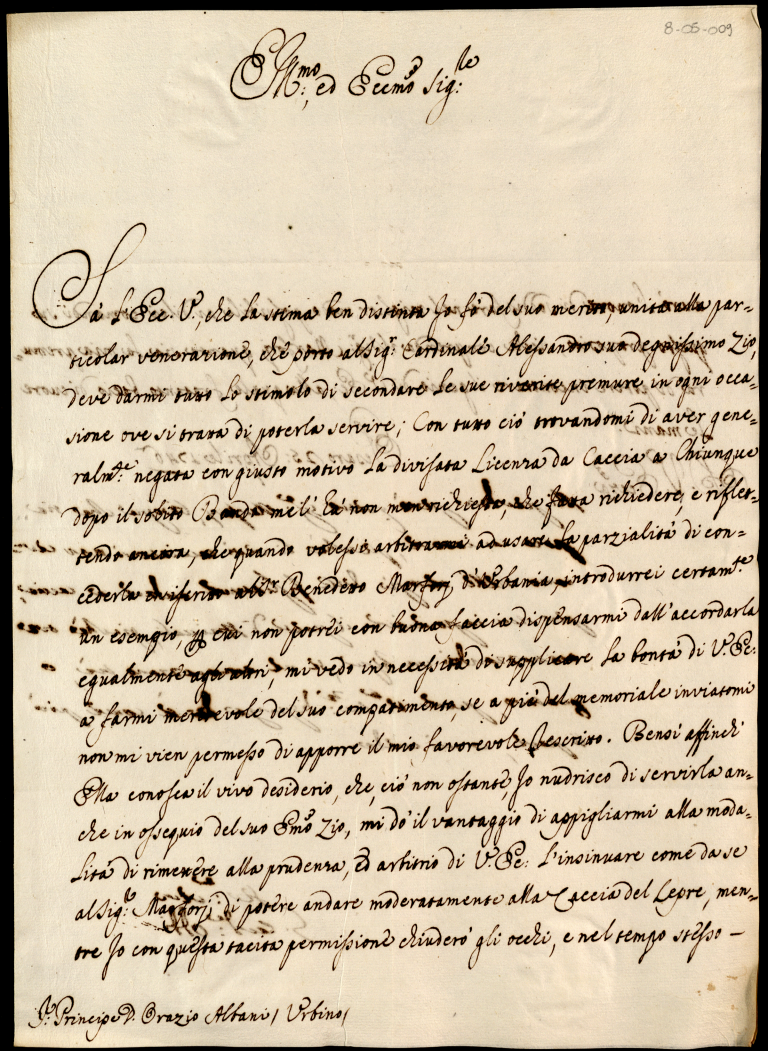 8-05-009
Ill:mo, ed Ecc:mo Sig:re
Sà l'Ecc. V., che la stima ben distinta Io fò del suo merito, unita alla par=
ticolar venerazione, che porto al Sig:r Cardinale Alessandro suo degnissimo Zio,
deve darmi tutto lo stimolo di secondare le sue riverite premure in ogni occa=
sione ove si tratta di poterla servire; Con tutto ciò trovandomi di aver gene=
ralm:te negata con giusto motivo la divisata Licenza da Caccia a Chiunque
dopo il solito Bando me l'hà non men richiesta, che fatta richiedere, e riflet=
tendo ancora, che quando volessi arbitrarmi ad usare la parzialità di con=
cederla in riferito al Sr Benedetto Marfori d'Urbania, introdurrei certam:te
un esempio, p cui non potrei con buona faccia dispensarmi dall'accordarla
egualmente agli altri, mi vedo in necessità di supplicare la bontà di V. Ec:
à farmi meritevole del suo compatimento, se a piè del memoriale inviatomi
non mi vien permesso di apporre il mio favorevole Rescritto. Bensì affinchè
Ella conosca il vivo desiderio, che, ciò non ostante, Io nudrisco di servirla an=
che in ossequio del suo Emo Zio, mi dò il vantaggio di appigliarmi alla moda=
lità di rimettere alla prudenza, ed arbitrio di V. Ec: l'insinuare come da se
al Sig:r Marfori di potere andare moderatamente alla Caccia del Lepre, men=
tre Io con questa tacita permissione chiuderò gli occhi, e nel tempo stesso —
Sr Principe D. Orazio Albani / Urbino /